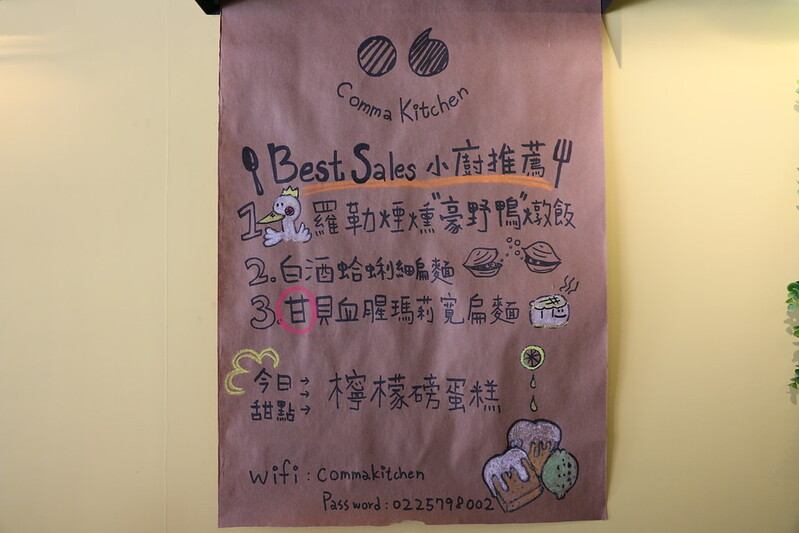 Comma Kitchen
Best Sales 小廚推薦
1. 羅勒煙燻"豪野鴨"燉飯
2. 白酒蛤蜊細扁麵
3. 甘貝血腥瑪莉寬扁麵
今日→
甜點→
檸檬磅蛋糕
Wifi : Commakitchen
Password : 0225798002